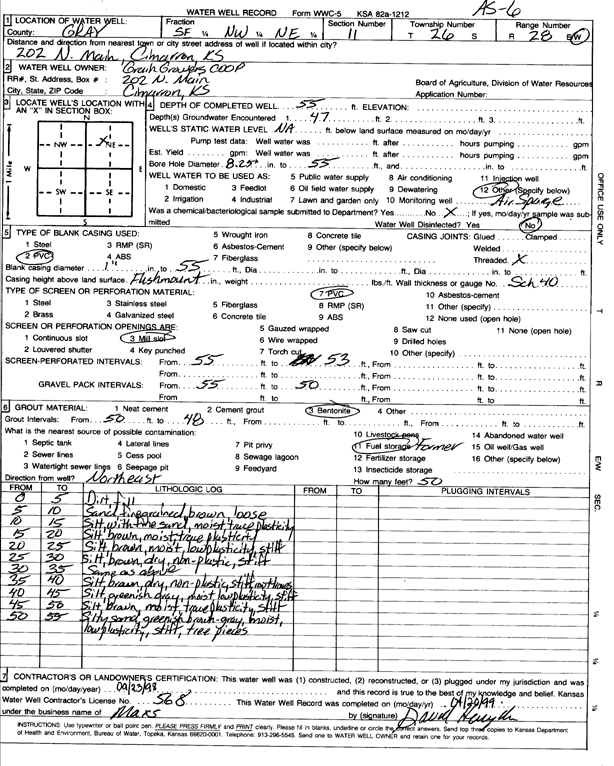 WATER WELL RECORD Form WWC-5 KSA 82a-1212
AS-6
1 LOCATION OF WATER WELL: Fraction Section Number Township Number Range Number
County: GRAY SE ¼ NW ¼ NE ¼ 11 T 26 S R 28 E/W
Distance and direction from nearest town or city street address of well if located within city?
202 N. Main, Cimarron, KS
2 WATER WELL OWNER: COOP
RR#, St. Address, Box # : 202 N. Main Board of Agriculture, Division of Water Resources
City, State, ZIP Code : Cimarron, KS Application Number:
3 LOCATE WELL'S LOCATION WITH AN "X" IN SECTION BOX:
N
NW NE
W E
SW SE
S
1 Mile
X
4 DEPTH OF COMPLETED WELL 55 ft. ELEVATION:
Depth(s) Groundwater Encountered 1. 47 ft. 2. ft. 3. ft.
WELL'S STATIC WATER LEVEL NA ft. below land surface measured on mo/day/yr
Pump test data: Well water was ft. after hours pumping gpm
Est. Yield gpm: Well water was ft. after hours pumping gpm
Bore Hole Diameter 8.25 in. to 55 ft., and in. to ft.
WELL WATER TO BE USED AS: 5 Public water supply 8 Air conditioning 11 Injection well
1 Domestic 3 Feedlot 6 Oil field water supply 9 Dewatering 12 Other (Specify below)
2 Irrigation 4 Industrial 7 Lawn and garden only 10 Monitoring well Air Sparge
Was a chemical/bacteriological sample submitted to Department? Yes No X; If yes, mo/day/yr sample was sub-
mitted Water Well Disinfected? Yes No
5 TYPE OF BLANK CASING USED: 5 Wrought iron 8 Concrete tile CASING JOINTS: Glued Clamped
1 Steel 3 RMP (SR) 6 Asbestos-Cement 9 Other (specify below) Welded
2 PVC 4 ABS 7 Fiberglass Threaded X
Blank casing diameter 1" in. to 55 ft., Dia in. to ft., Dia in. to ft.
Casing height above land surface Flushmount in., weight lbs./ft. Wall thickness or gauge No. Sch 40
TYPE OF SCREEN OR PERFORATION MATERIAL: 7 PVC 10 Asbestos-cement
1 Steel 3 Stainless steel 5 Fiberglass 8 RMP (SR) 11 Other (specify)
2 Brass 4 Galvanized steel 6 Concrete tile 9 ABS 12 None used (open hole)
SCREEN OR PERFORATION OPENINGS ARE: 5 Gauzed wrapped 8 Saw cut 11 None (open hole)
1 Continuous slot 3 Mill slot 6 Wire wrapped 9 Drilled holes
2 Louvered shutter 4 Key punched 7 Torch cut 10 Other (specify)
SCREEN-PERFORATED INTERVALS: From 55 ft. to 53 ft., From ft. to ft.
From ft. to ft., From ft. to ft.
GRAVEL PACK INTERVALS: From 55 ft. to 50 ft., From ft. to ft.
From ft. to ft., From ft. to ft.
6 GROUT MATERIAL: 1 Neat cement 2 Cement grout 3 Bentonite 4 Other
Grout Intervals: From 50 ft. to 48 ft., From ft. to ft., From ft. to ft.
What is the nearest source of possible contamination: 10 Livestock pens 14 Abandoned water well
1 Septic tank 4 Lateral lines 7 Pit privy 11 Fuel storage Former 15 Oil well/Gas well
2 Sewer lines 5 Cess pool 8 Sewage lagoon 12 Fertilizer storage 16 Other (specify below)
3 Watertight sewer lines 6 Seepage pit 9 Feedyard 13 Insecticide storage
Direction from well? Northeast How many feet? 50
FROM TO LITHOLOGIC LOG FROM TO PLUGGING INTERVALS
0 5 Dirt, fill
5 10 Sand, fine grained, brown, loose
10 15 Silt, with fine sand, moist, trace plasticity
15 20 Silt, brown, moist, trace plasticity
20 25 Silt, brown, moist, low plasticity, stiff
25 30 Silt, brown, dry, non-plastic, stiff
30 35 Same as above
35 40 Silt, brown, dry, non-plastic, stiff,
40 45 Silt, greenish gray, moist, low plasticity, stiff
45 50 Silt, brown, moist, trace plasticity, stiff
50 55 Silty sand, greenish brown-gray, moist,
low plasticity, stiff, pieces
7 CONTRACTOR'S OR LANDOWNER'S CERTIFICATION: This water well was (1) constructed, (2) reconstructed, or (3) plugged under my jurisdiction and was
completed on (mo/day/year) 09/23/98 and this record is true to the best of my knowledge and belief. Kansas
Water Well Contractor's License No. 568 This Water Well Record was completed on (mo/day/yr)
under the business name of by (signature) David
INSTRUCTIONS: Use typewriter or ball point pen. PLEASE PRESS FIRMLY and PRINT clearly. Please fill in blanks, underline or circle the correct answers. Send top three copies to Kansas Department
of Health and Environment, Bureau of Water, Topeka, Kansas 66620-0001. Telephone: 913-296-5545. Send one to WATER WELL OWNER and retain one for your records.
OFFICE USE ONLY
T
R
E/W
SEC.
¼
¼
¼